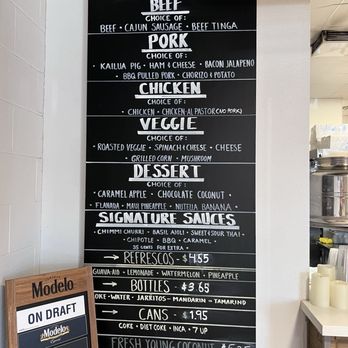 BEEF
CHOICE OF:
BEEF • CAJUN SAUSAGE • BEEF TINGA
PORK
CHOICE OF:
KAILUA PIG • HAM & CHEESE • BACON JALAPENO
BBQ PULLED PORK • CHORIZO & POTATO
CHICKEN
CHOICE OF:
• CHICKEN • CHICKEN-AL PASTOR (NO PORK)
VEGGIE
CHOICE OF:
• ROASTED VEGGIE • SPINACH & CHEESE • CHEESE
GRILLED CORN • MUSHROOM
DESSERT
CHOICE OF:
CARAMEL APPLE • CHOCOLATE COCONUT •
FLANADA • MAUI PINEAPPLE • NUTELLA BANANA •
SIGNATURE SAUCES
• CHIMMI CHURRI • BASIL AIOLI • SWEET & SOUR THAI •
CHIPOTLE • BBQ • CARAMEL •
35 CENTS FOR EXTRA •
REFRESCOS - $4.55
GUAVA-AID • LEMONADE • WATERMELON • PINEAPPLE
BOTTLES - $3.63
COKE • WATER • JARRITOS - MANDARIN - TAMARIND
CANS - $1.95
COKE • DIET COKE • INCA • 7 UP
FRESH YOUNG COCONUT
Modelo
ON DRAFT
Modelo